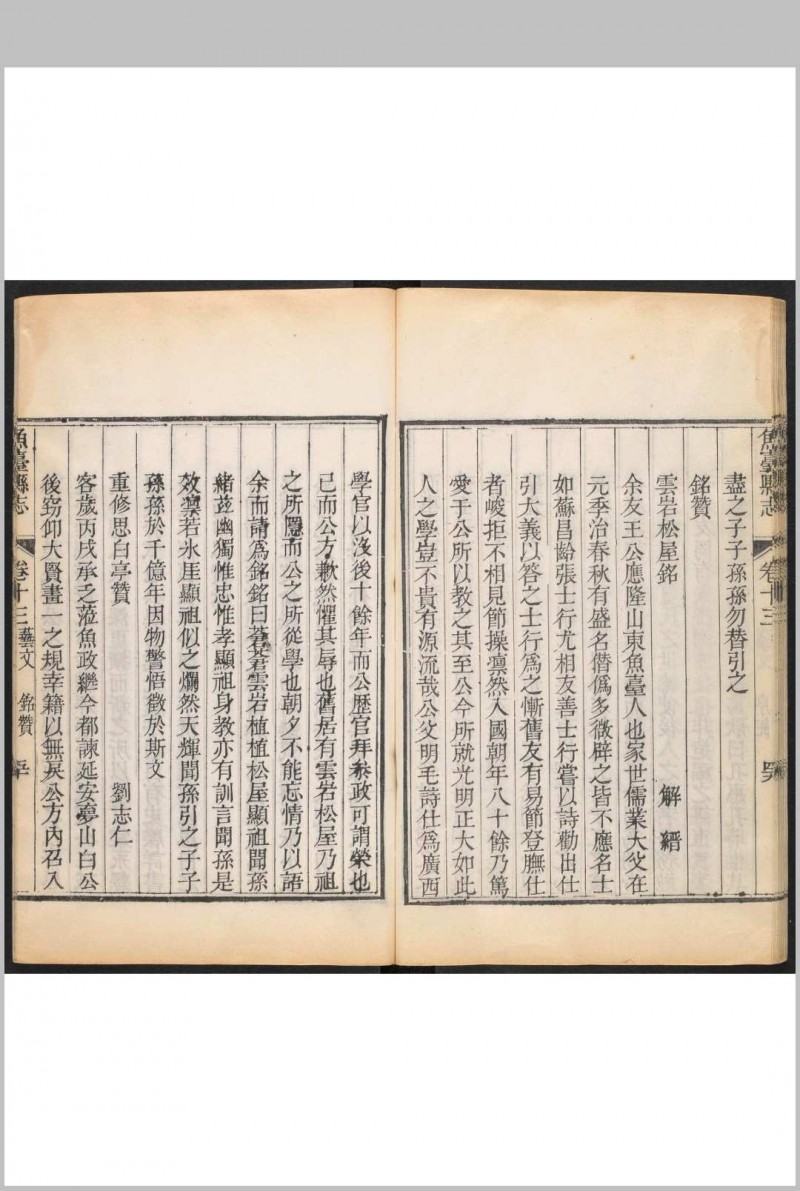 魚臺縣志 卷十三
盡之子子孫孫勿替引之
銘贊
雲岩松屋銘
解縉
余友王公應隆山東魚臺人也家世儒業大父在
元季治春秋有盛名僭僞多徵辟之皆不應名士
如蘇昌齡張士行尤相友善士行嘗以詩勸出仕
引大義以答之士行爲之慚舊友有易節登膴仕
者峻拒不相見節操凛然入國朝年八十餘乃篤
愛于公所以教之其至公今所就光明正大如此
人之學豈不貴有源流哉公父明毛詩仕爲廣西
學官以沒後十餘年而公歷官拜叅政可謂榮也
已而公方歉然懼其辱也舊居有雲岩松屋乃祖
之所隱而公之所從學也朝夕不能忘情乃以語
余而請爲銘銘曰蒼蒼雲岩植植松屋顯祖聞孫
緒茲幽獨惟忠惟孝顯祖身教亦有訓言聞孫是
效凛若氷厓顯祖似之爛然天輝聞孫引之子子
孫孫於千億年因物警悟徵於斯文
重修思白亭贊
劉志仁
客歲丙戌承乏蒞魚政繼今都諫延安夢山白公
後窃仰大賢畫一之規幸籍以無戾公方內召入
魚臺縣志 卷十三 藝文 銘贊